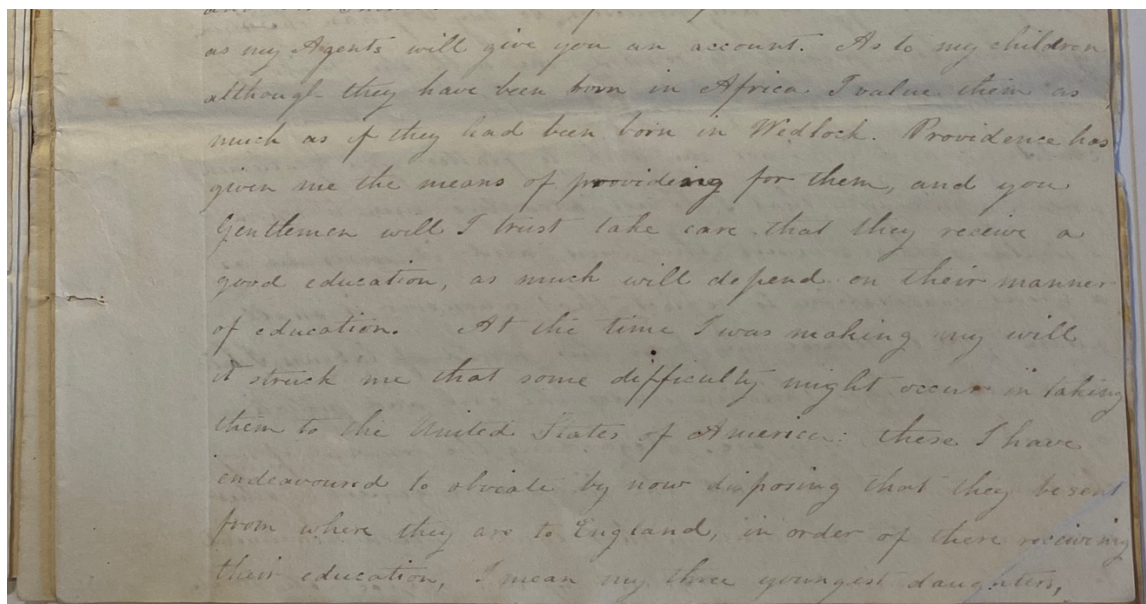 as my Agents will give you an account. As to my children
although they have been born in Africa. I value them as
much as if they had been born in Wedlock. Providence has
given me the means of provideing for them, and you
Gentlemen will I trust take care that they receive a
good education, as much will depend on their manner
of education. At the time I was making my will
it struck me that some difficulty might occur in taking
them to the United States of America: these I have
endeavoured to obviate by now disposing that they be sent
from where they are to England, in order of there receiving
their education, I mean my three youngest daughters,